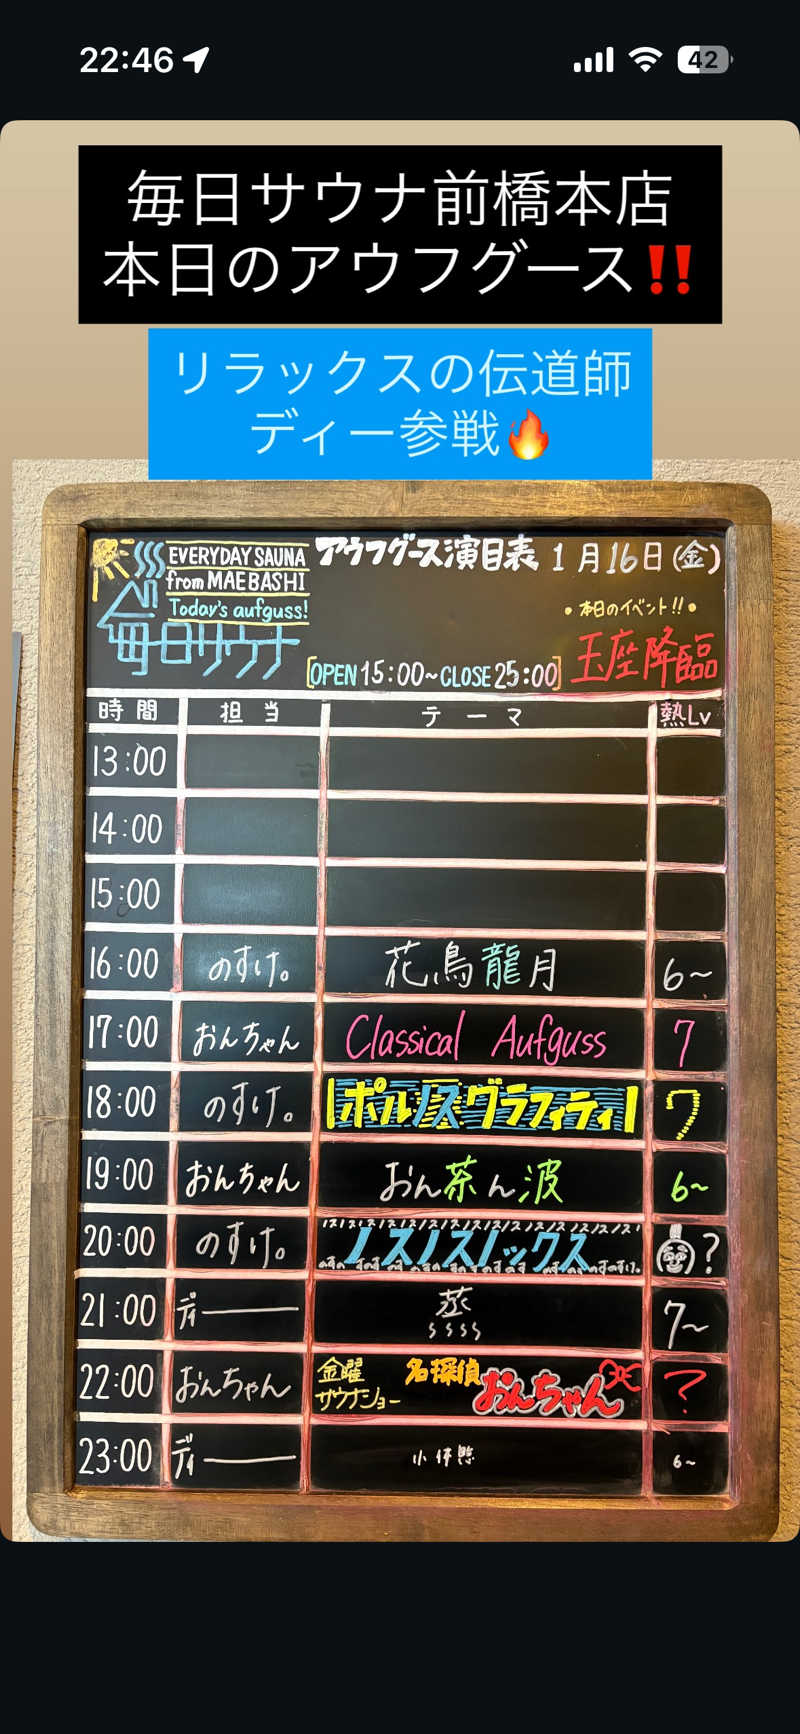 22:46
42
毎日サウナ前橋本店
本日のアウフグース‼️
リラックスの伝道師
ディー参戦🔥
EVERYDAY SAUNA
from MAEBASHI
Today's aufguss!
毎日サウナ
アウフグース演目表 1月16日(金)
•本日のイベント!!•
玉座降臨
[OPEN 15:00~CLOSE 25:00]
時間 担当 テーマ 熱Lv
13:00
14:00
15:00
16:00 のすけ。 花鳥龍月 6~
17:00 おんちゃん Classical Aufguss 7
18:00 のすけ。 ポルノスグラフィティ 7
19:00 おんちゃん おん茶ん波 6~
20:00 のすけ。 ノスノスノックス ?
21:00 ディー 蒸 7~
22:00 おんちゃん 金曜サウナショー 名探偵おんちゃん ?
23:00 ディー 小休憩 6~